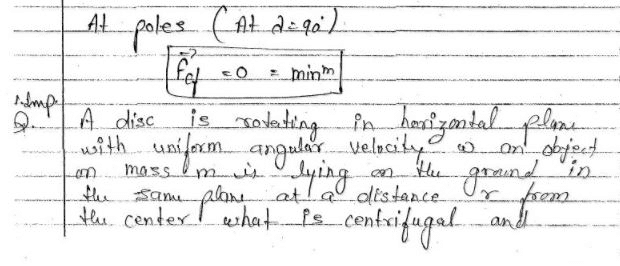 At poles (At λ=90°)
F⃗cf = 0 = minm
Imp.
Q. A disc is rotating in horizontal plane
with uniform angular velocity ω an object
on mass m is lying on the ground in
the same plane at a distance r from
the center what is centrifugal and